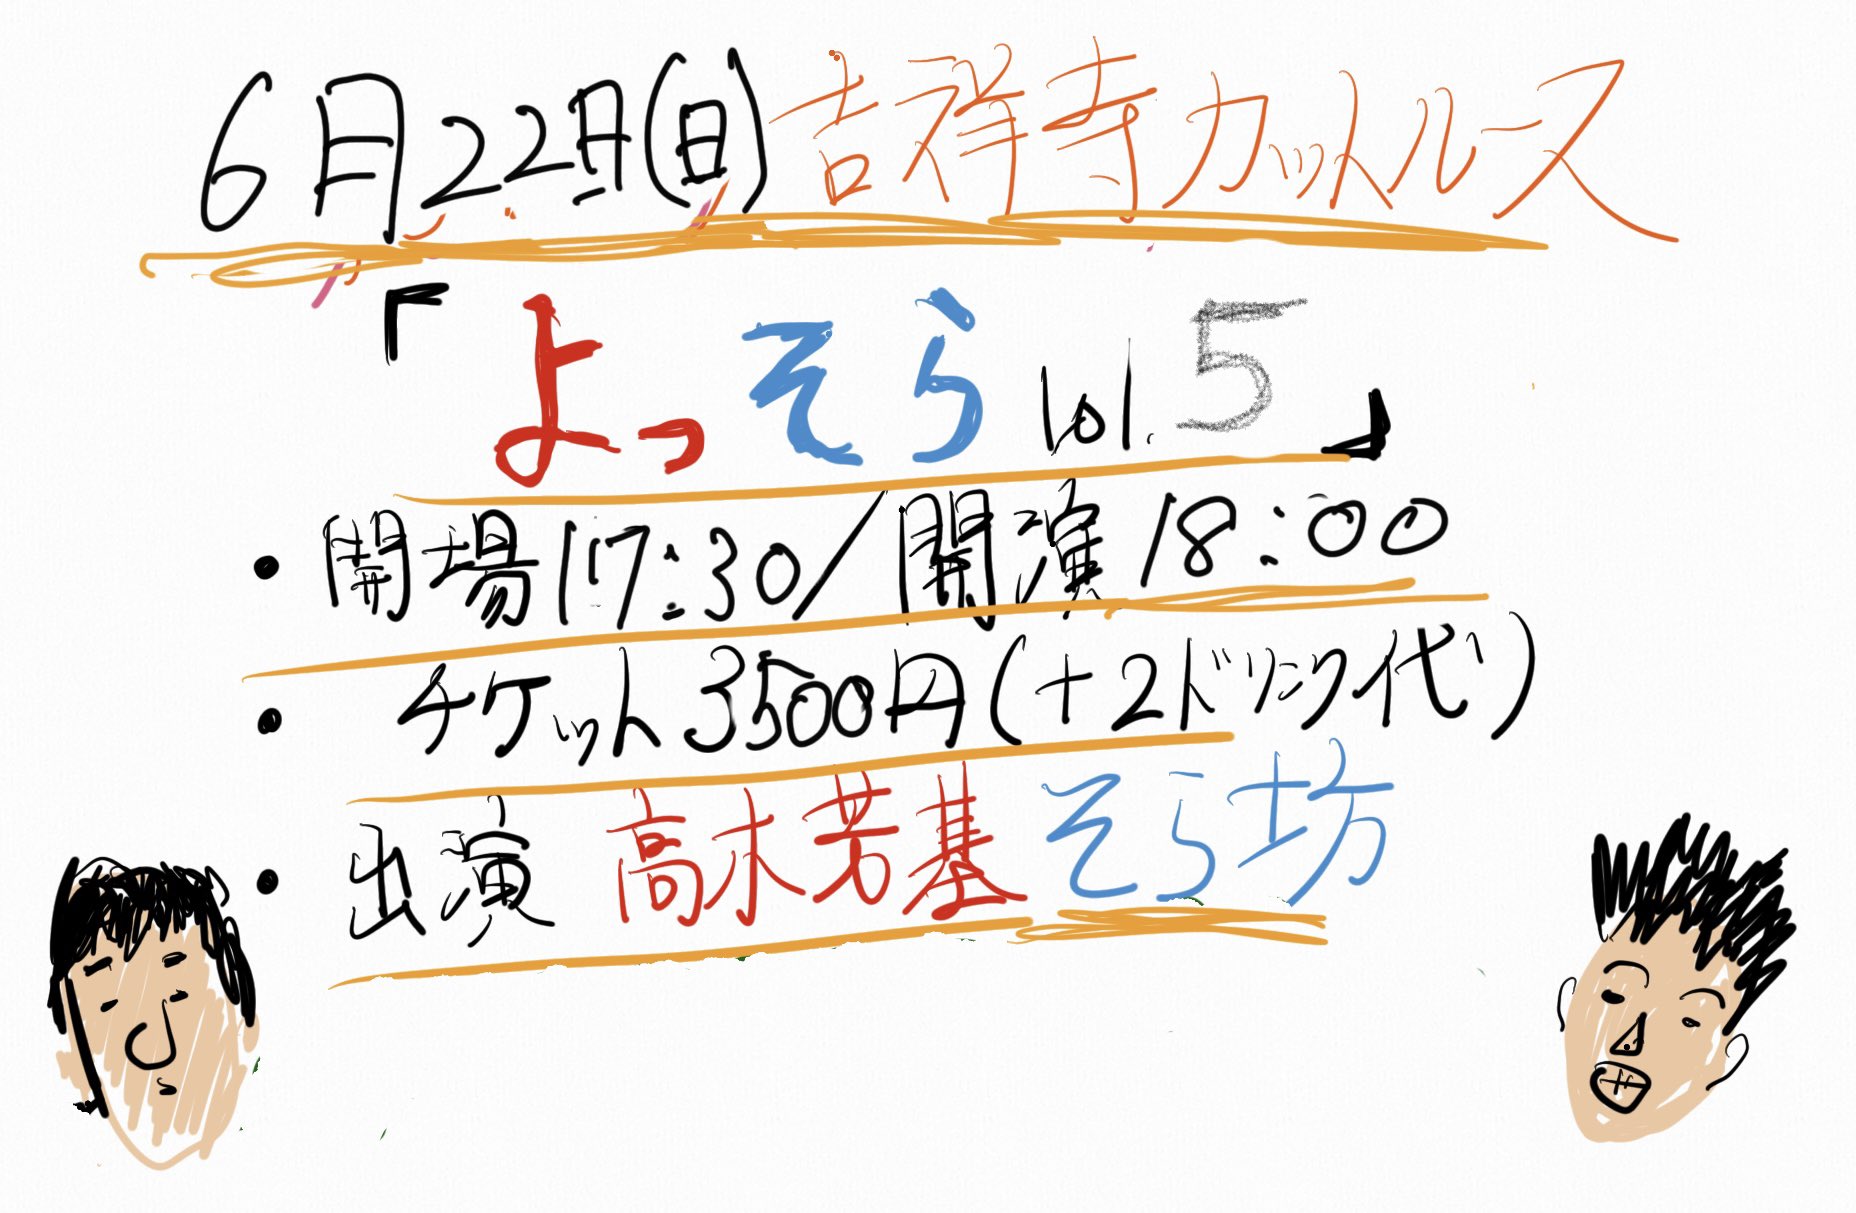 6月22日(日)吉祥寺カットルース
「よっそらvol.5」
・開場17:30/開演18:00
・チケット3500円(+2ドリンク代)
・出演 高木芳基 そら坊